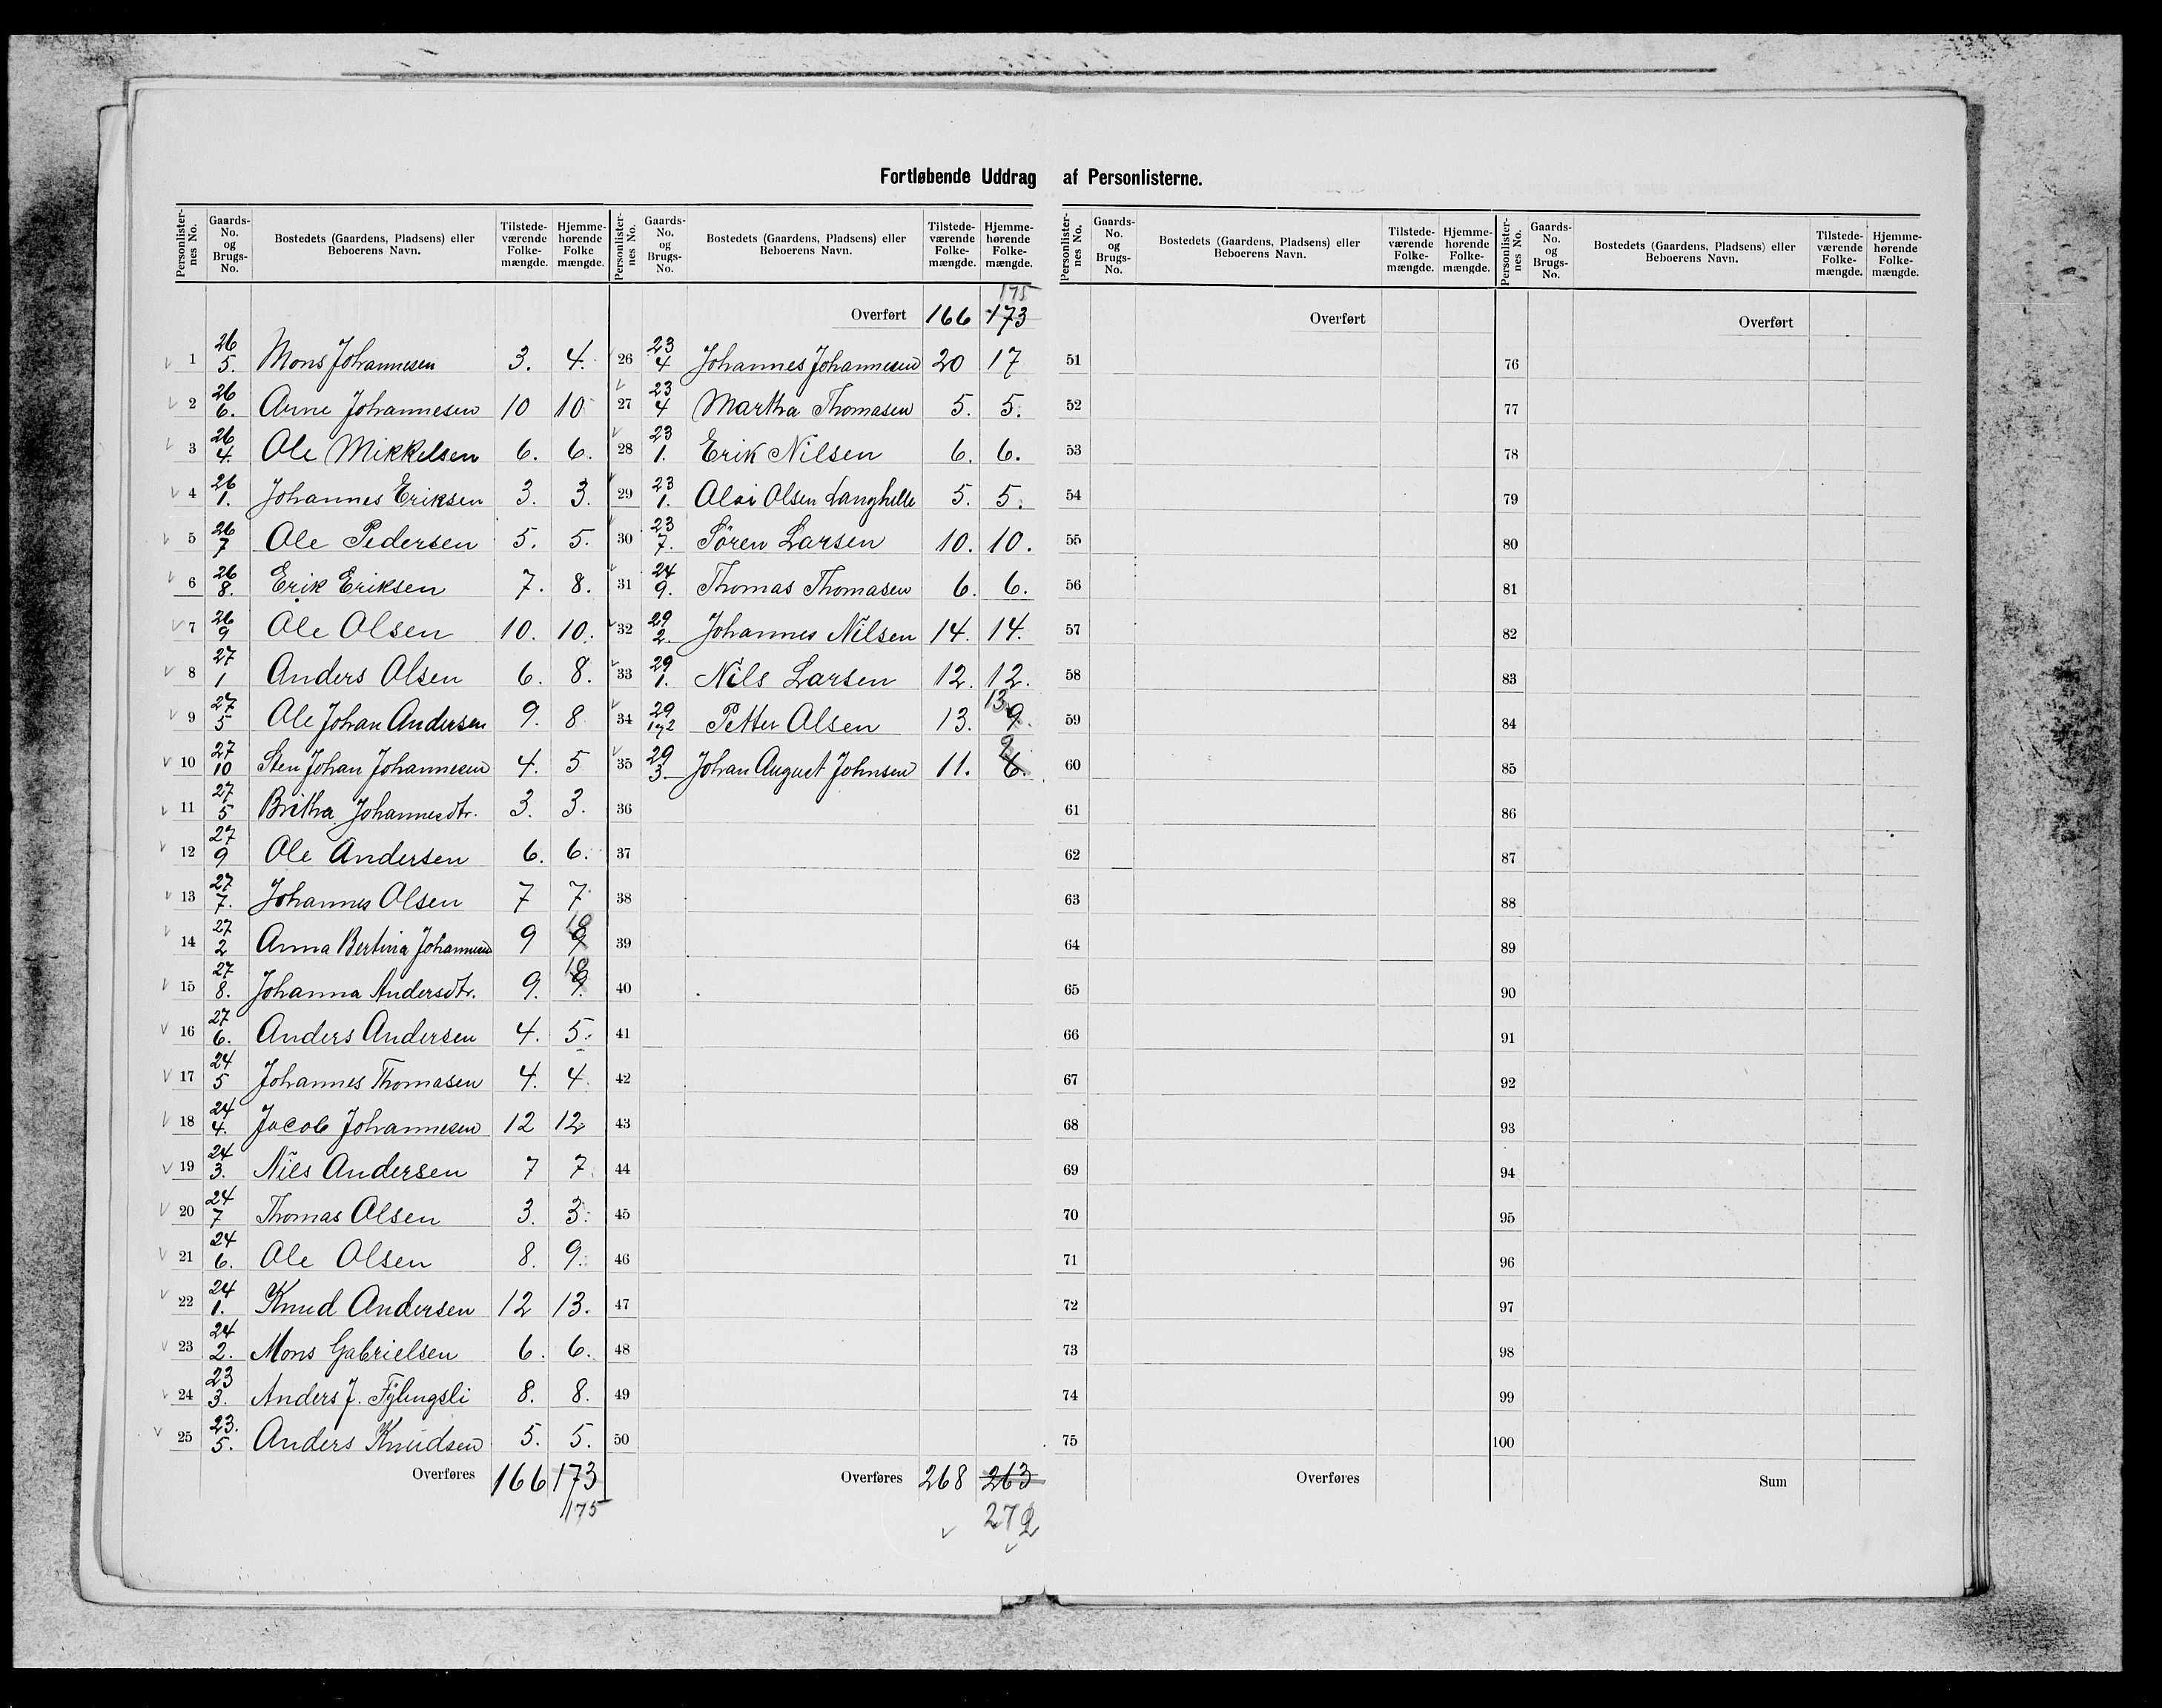 Fortløbende Uddrag af Personlisterne.
Personlisternes No. | Gaards-No. og Brugs-No. | Bostedets (Gaardens, Pladsens) eller Beboerens Navn. | Tilstedeværende Folkemængde. | Hjemmehørende Folkemængde.
1 26/5. Mons Johannesen 3. 4.
2 26/6. Arne Johannesen 10 10
3 26/4. Ole Mikkelsen 6. 6.
4 26/1. Johannes Eriksen 3. 3.
5 26/7 Ole Pedersen 5. 5.
6 26/8. Erik Eriksen 7. 8.
7 26/9 Ole Olsen 10. 10.
8 27/1 Anders Olsen 6. 8.
9 27/5 Ole Johan Andersen 9. 8
10 27/10 Sten Johan Johannesen 4. 5
11 27/5 Britha Johannesdtr. 3. 3.
12 27/9 Ole Andersen 6. 6.
13 27/7. Johannes Olsen 7 7
14 27/2 Anna Bertina Johannesen 9 9 10
15 27/8. Johanna Andersdtr. 9. 9. 10
16 27/6. Anders Andersen 4. 5.
17 24/5 Johannes Thomasen 4. 4.
18 24/4. Jacob Johannesen 12 12
19 24/3. Nils Andersen 7 7.
20 24/7 Thomas Olsen 3. 3.
21 24/6. Ole Olsen 8. 9.
22 24/1. Knud Andersen 12 13.
23 24/2. Mons Gabrielsen 6. 6.
24 23/3. Anders J. Fylingsli 8. 8.
25 23./5. Anders Knudsen 5. 5.
Overføres 166 173
175
Personlisternes No. | Gaards-No. og Brugs-No. | Bostedets (Gaardens, Pladsens) eller Beboerens Navn. | Tilstedeværende Folkemængde. | Hjemmehørende Folkemængde.
175
Overført 166 173
26 23/4 Johannes Johannesen 20 17
27 23/4 Martha Thomasen 5. 5.
28 23/1. Erik Nilsen 6. 6.
29 23/1. Olai Olsen Langhelle 5. 5.
30 23/7. Sören Larsen 10. 10.
31 24/9. Thomas Thomasen 6. 6.
32 29/2. Johannes Nilsen 14. 14.
33 29/1. Nils Larsen 12. 12.
34 29/1,2 Petter Olsen 13. 9. 13
35 29/3. Johan August Johnsen 11. 6. 9
36
37
38
39
40
41
42
43
44
45
46
47
48
49
50
Overføres 268 263
272
Personlisternes No. | Gaards-No. og Brugs-No. | Bostedets (Gaardens, Pladsens) eller Beboerens Navn. | Tilstedeværende Folkemængde. | Hjemmehørende Folkemængde.
Overført
51
52
53
54
55
56
57
58
59
60
61
62
63
64
65
66
67
68
69
70
71
72
73
74
75
Overføres
Personlisternes No. | Gaards-No. og Brugs-No. | Bostedets (Gaardens, Pladsens) eller Beboerens Navn. | Tilstedeværende Folkemængde. | Hjemmehørende Folkemængde.
Overført
76
77
78
79
80
81
82
83
84
85
86
87
88
89
90
91
92
93
94
95
96
97
98
99
100
Sum